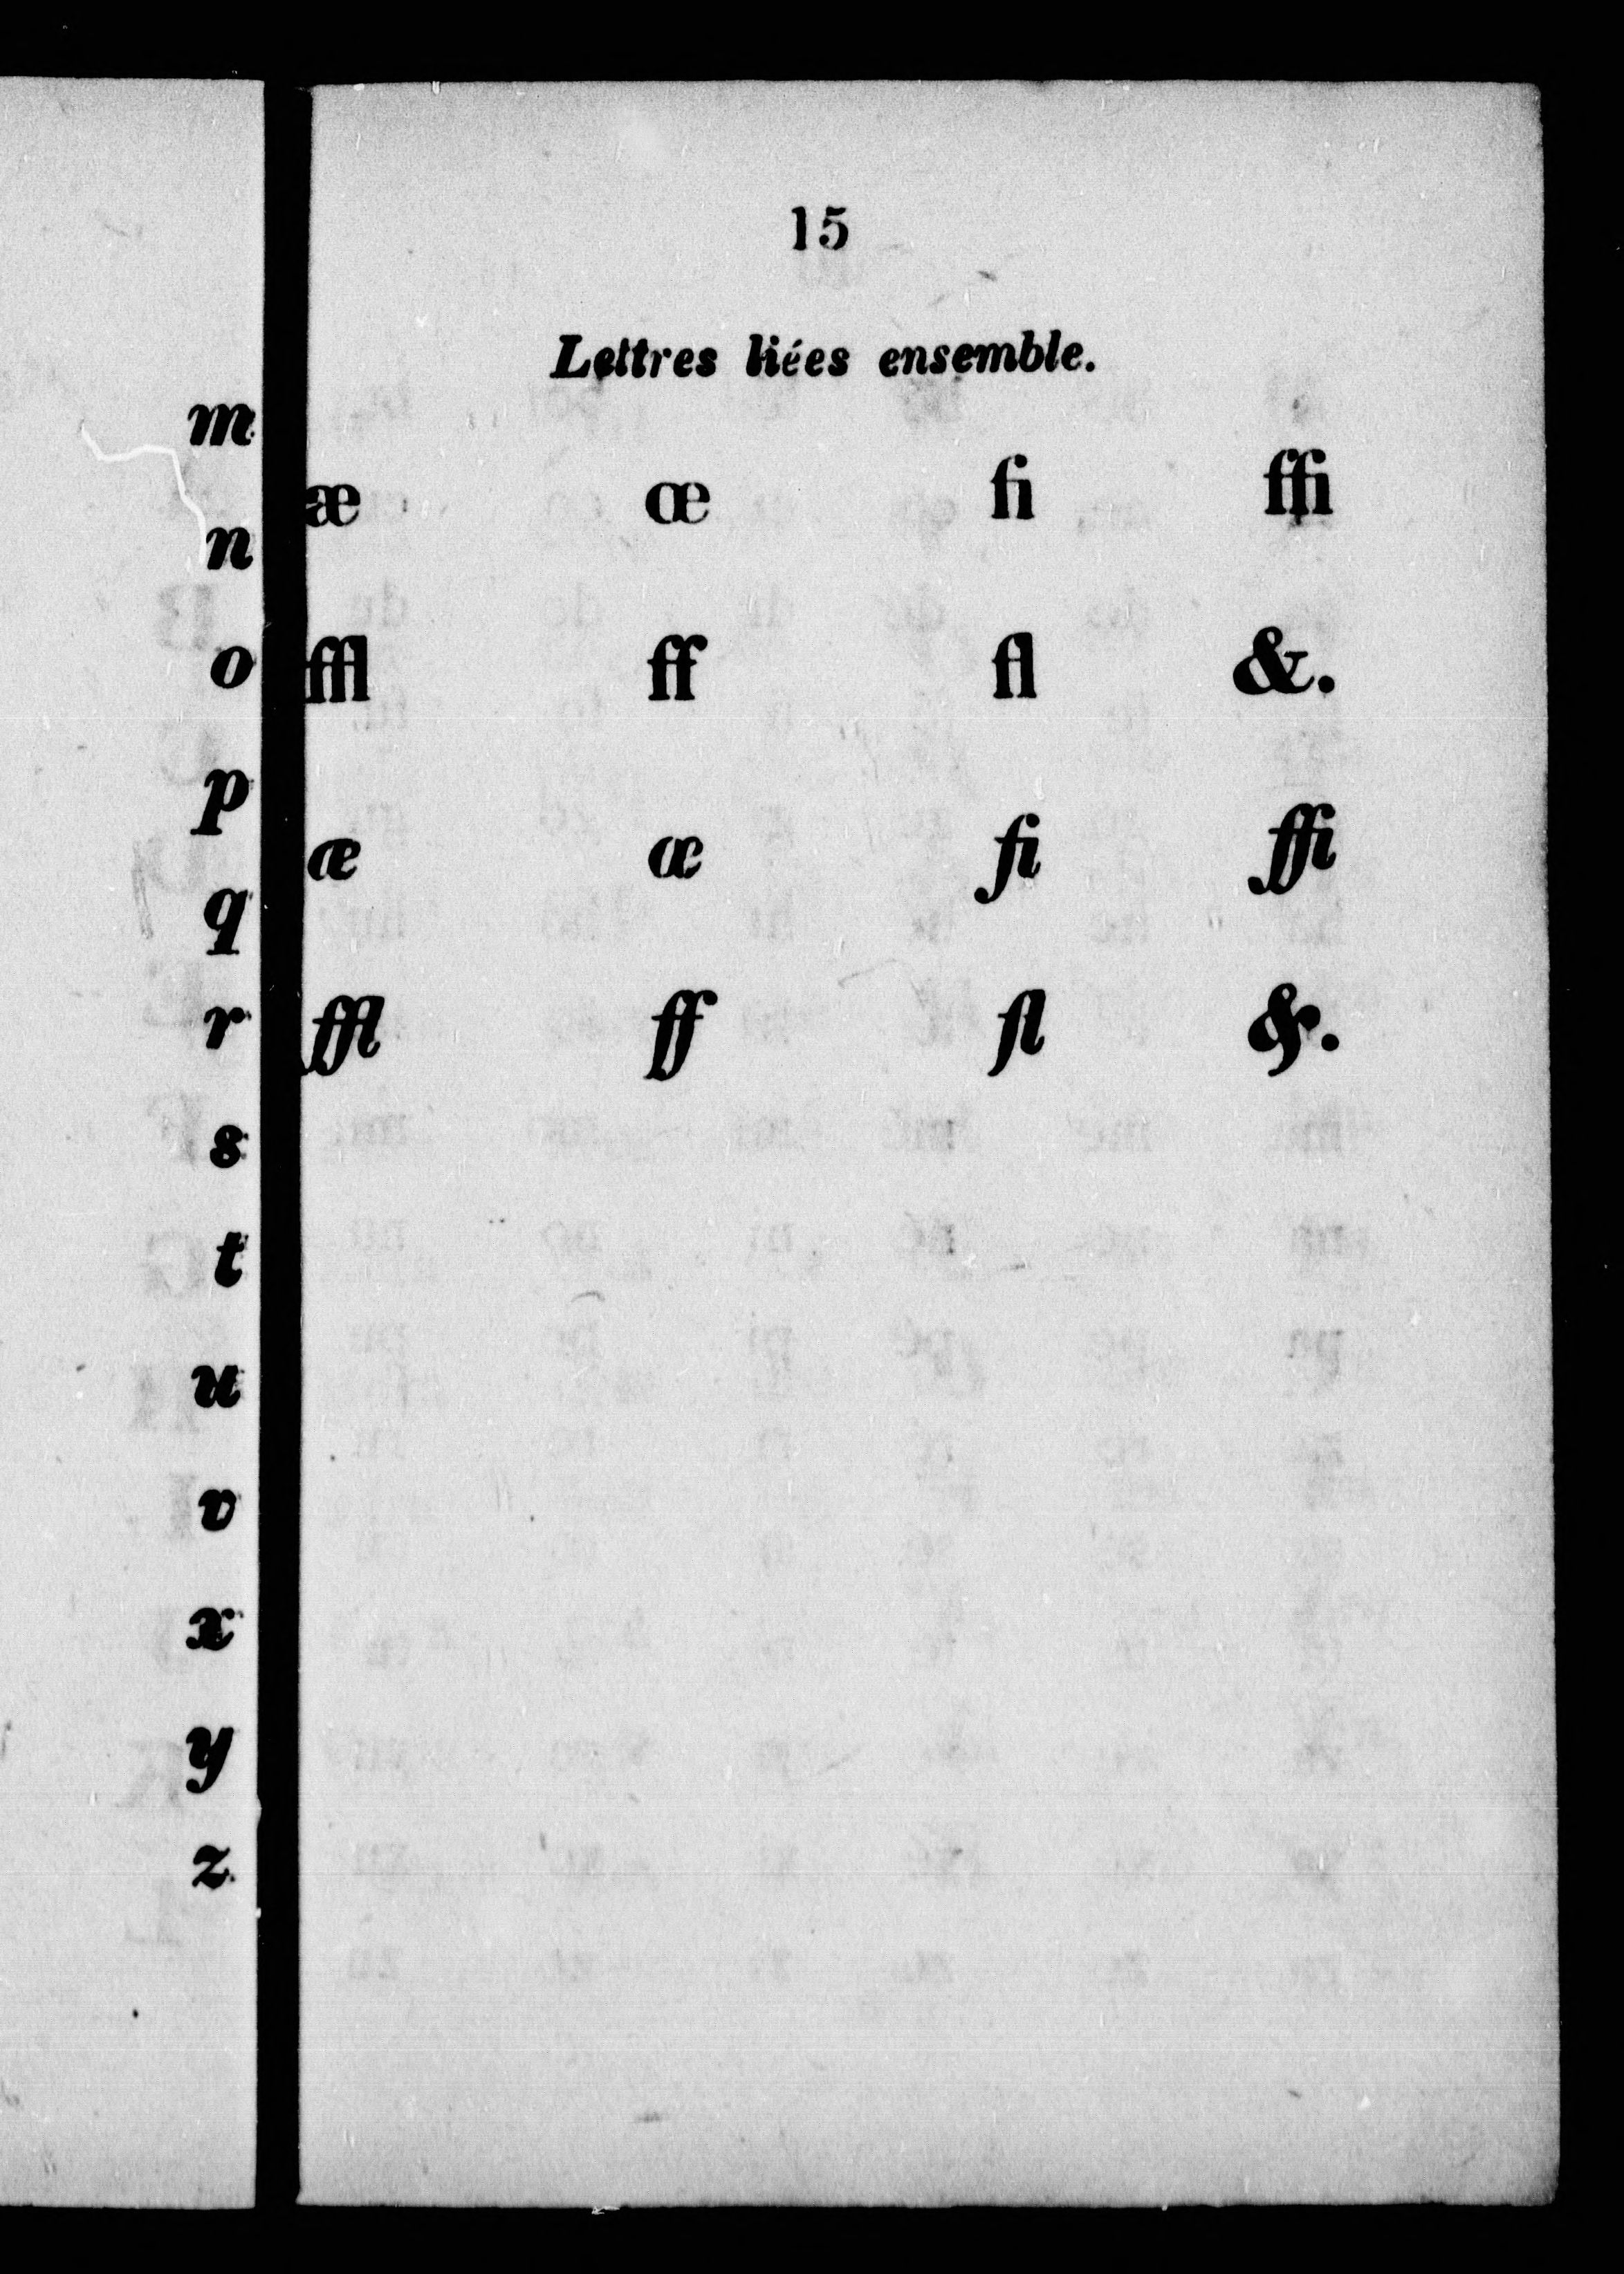 m
n
o
p
q
r
s
t
u
v
x
y
z
15
Lettres liées ensemble.
æ œ fi ffi
ffl ff fl &.
æ œ fi ffi
ffl ff fl &.